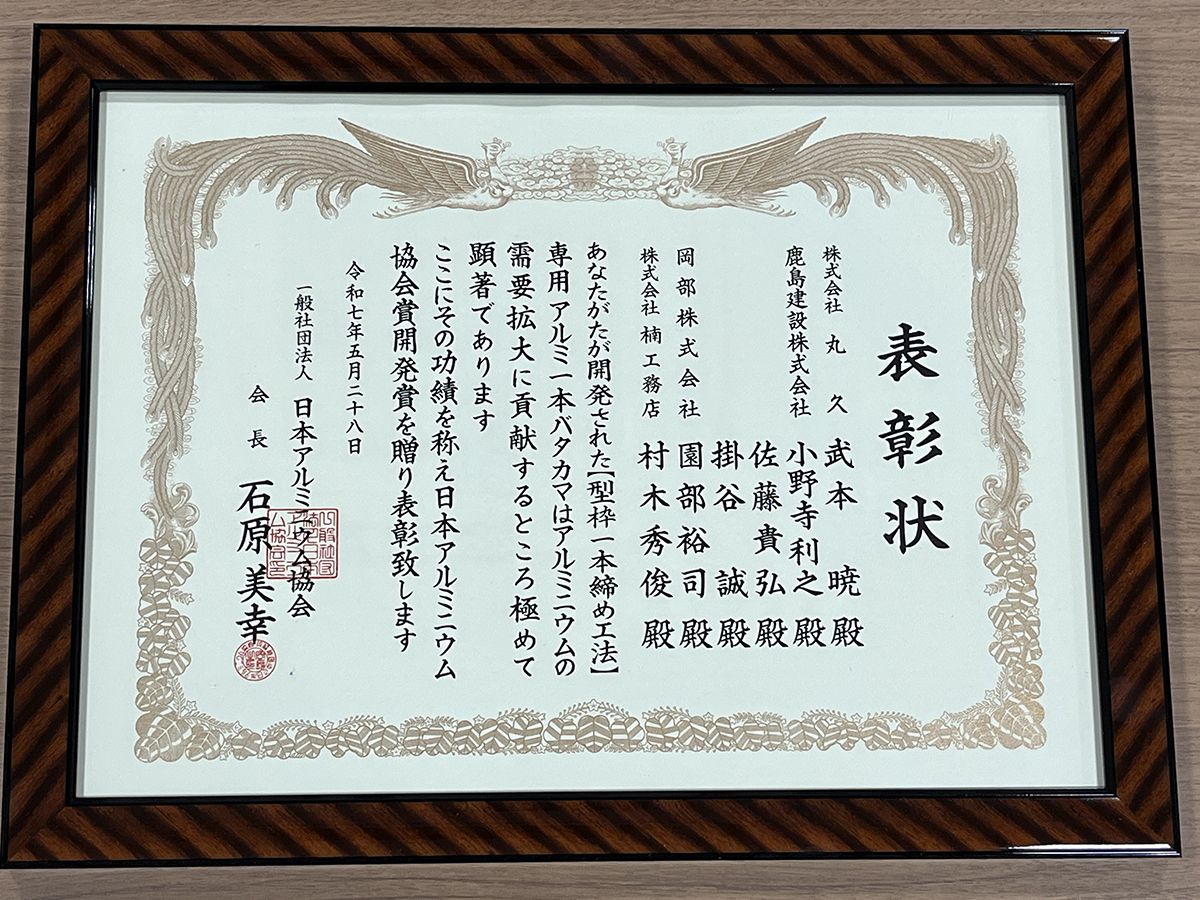 表彰状
株式会社 丸久 武本 暁 殿
鹿島建設株式会社 小野寺利之 殿
佐藤貴弘 殿
掛谷 誠 殿
岡部株式会社 園部裕司 殿
株式会社 楠工務店 村木秀俊 殿
あなたがたが開発された【型枠一本締め工法】
専用アルミ一本バタカマはアルミニウムの
需要拡大に貢献するところ極めて
顕著であります
ここにその功績を称え日本アルミニウム
協会賞開発賞を贈り表彰致します
令和七年五月二十八日
一般社団法人 日本アルミニウム協会
会長 石原美幸